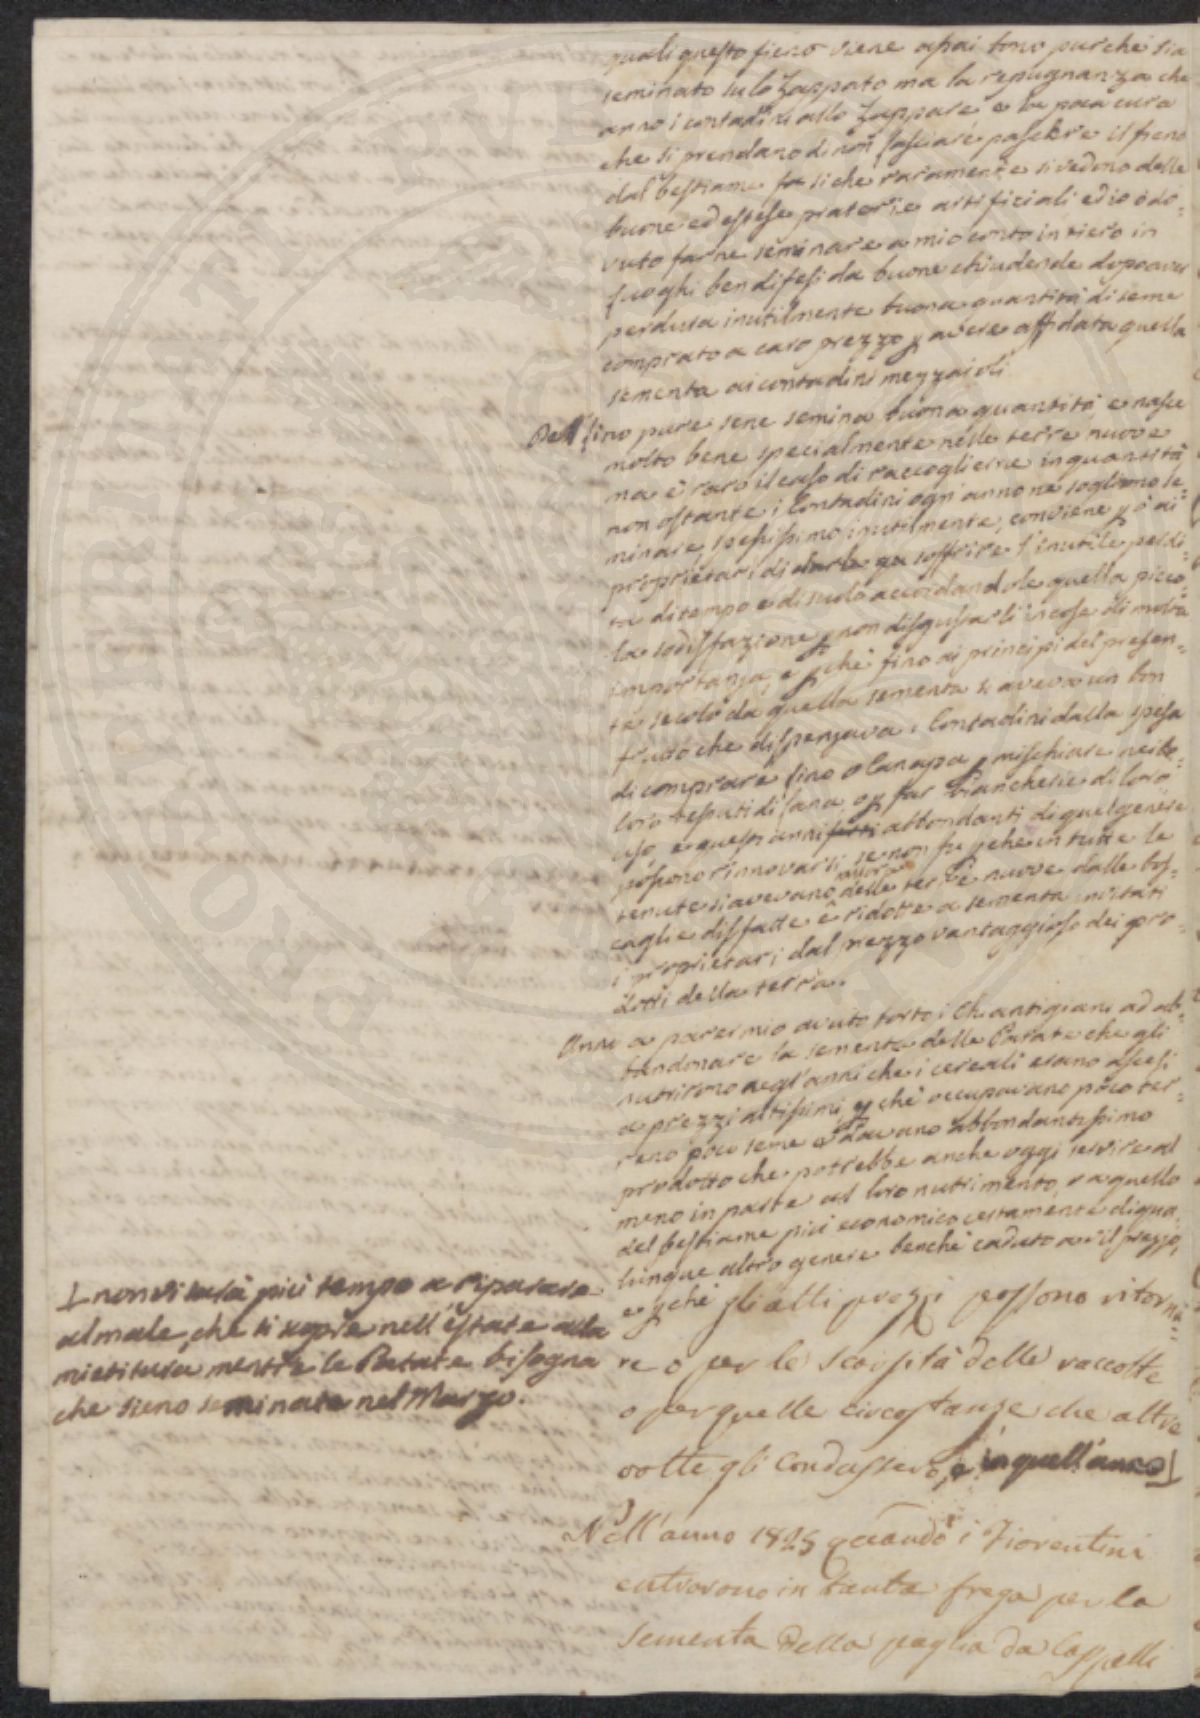 quali questo fieno viene assai bono purchè sia
seminato su lo zappato ma la repugnanza che
anno i contadini allo zappare e la poca cura
che si prendano di non lasciare pascere il fieno
dal bestiame si che raramente si vedono delle
buone ed estese praterie artificiali ed io ò do-
vuto farne seminare a mio conto intiero in
luoghi ben difesi da buone chiudende dopo aver
perduta inutilmente buona quantità di seme
comprato a caro prezzo p avere affidata quella
sementa ai contadini mezzaioli
Del lino pure sene semina buona quantità, e nasce
molto bene specialmente nelle terre nuove
ma è raro il caso di raccoglierne in quantità
non ostante i Contadini ogn'anno ne vogliono se-
minare, spessissimo inutilmente, conviene p ò ai
proprietari di soffrire l'inutile perdi-
ta di tempo e di suolo accordandole quella picco-
la sodisfazione p non disgustarli in cose di molta
importanza, e p chè fino ai principi del presen-
te secolo da quella sementa si aveva un bon
frutto che dispensava i Contadini dalla spesa
di comprare lino o Canapa p mischiare nei
loro tessuti di lana, o p far biancherie di loro
uso, e questi anni abbondanti di quel genere
possono rinnovarsi, se non fu p che in tutte le
tenute si avevano allora delle terre nuove dalle bos-
caglie disfatte e ridotte a sementa invitati
i proprietari dal prezzo vantaggioso dei pro-
dotti della terra.
Anno a parer mio avuto torto i Chiantigiani ad ab-
bandonare la sementa delle Patate che gli
nutrirono negl'anni che i cereali erano ascesi
a prezzi altissimi, p chè occupavano poco ter-
reno poco seme e davano abbondantissimo
prodotto che potrebbe anche oggi servire al
meno in parte al loro nutrimento, e a quello
del bestiame più economico certamente di qua-
lunque altro genere benchè caduto a vil prezzo,
e p chè gli alti prezzi possono ritorna-
re o per le scarsità delle raccolte
o per quelle circostanze che altre
volte gli condussero, e in quell'anno
non vi sarà più tempo a riparare
al male, che si scopre nell'estate alla
mietitura mentre le Patate bisogna
che sieno seminate nel Marzo.
Nell'anno 1825 quando i Fiorentini
entrorono in tanta frega per la
sementa della paglia da Cappelli